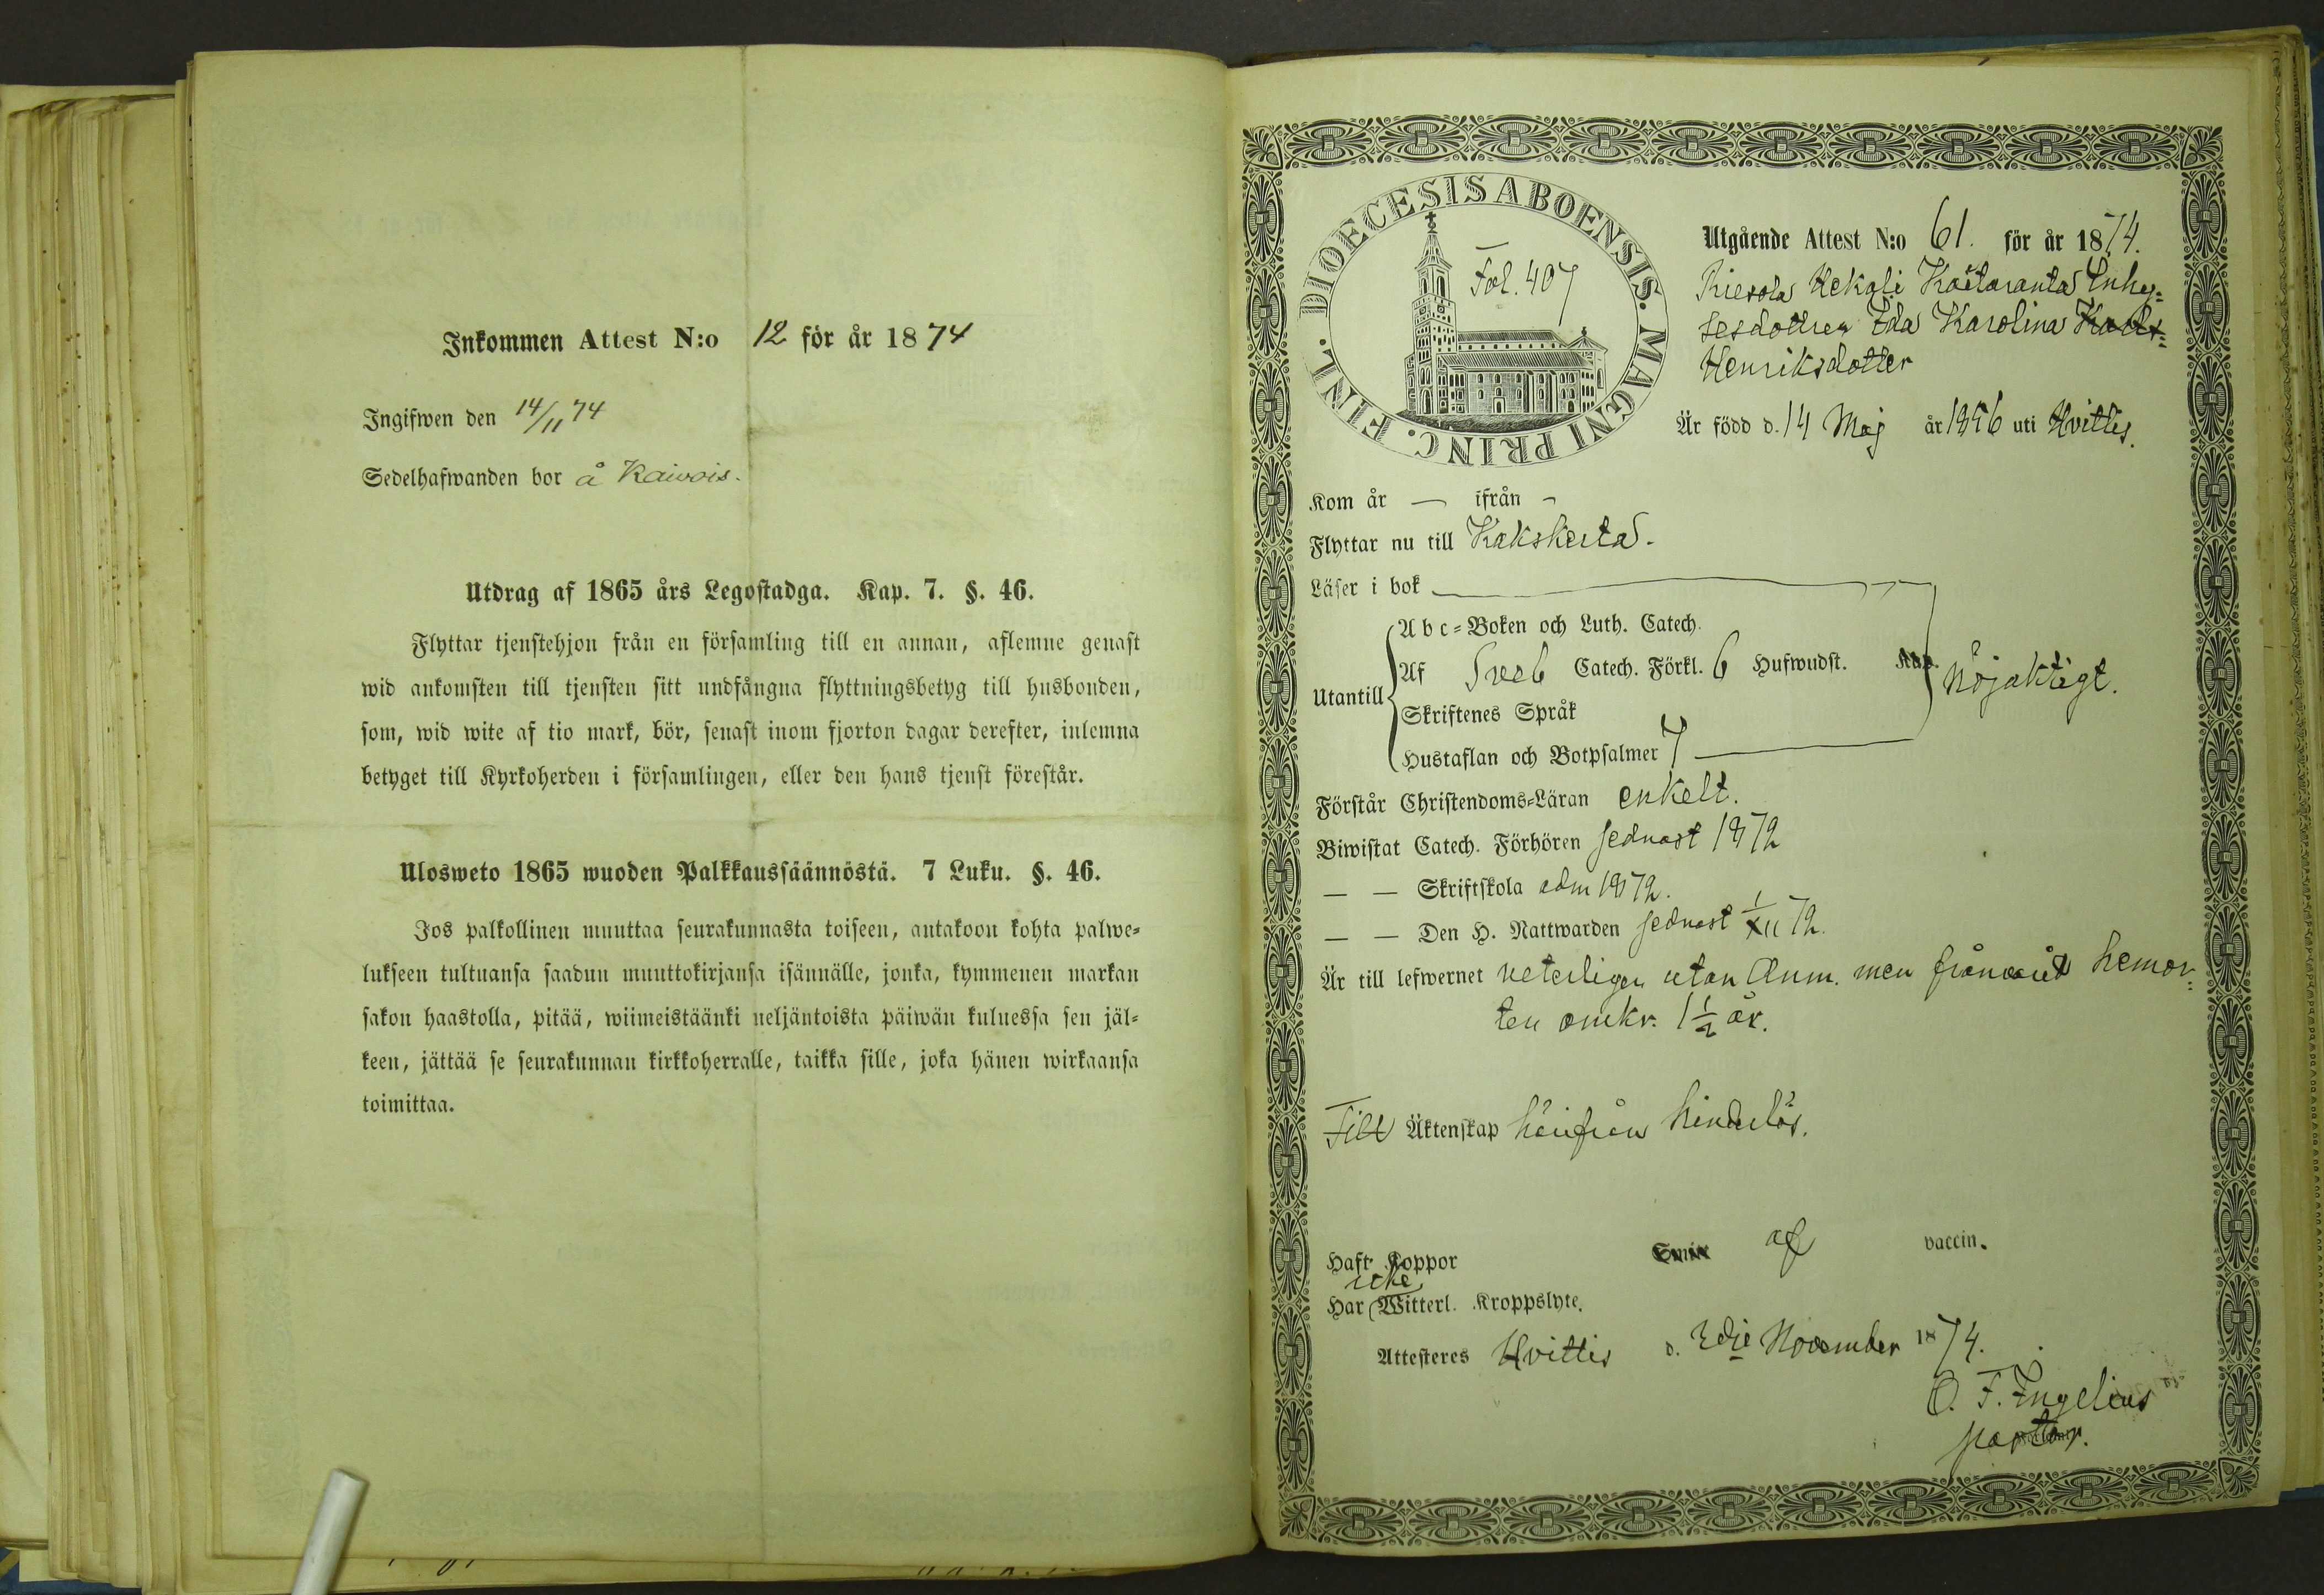 Inkommen Attest N:o 12 för år 1874
Ingifwen den 14/11 74
Sedelhafwanden bor å Kaivois.
Utdrag af 1865 års Legostadga. Kap. 7. §. 46.
Flyttar tjenstehjon från en församling till en annan, aflemne genast
wid ankomsten till tjensten sitt undfångna flyttningsbetyg till husbonden,
som, wid wite af tio mark, bör, senast inom fjorton dagar derefter, inlemna
betyget till Kyrkoherden i församlingen, eller den hans tjenst förestår.
Ulosweto 1865 wuoden Palkkaussäännöstä. 7 Luku. §. 46.
Jos palkollinen muuttaa seurakunnasta toiseen, antakoon kohta palwe=
lukseen tultuansa saadun muuttokirjansa isännälle, jonka, kymmenen markan
sakon haastolla, pitää, wiimeistäänki neljäntoista päiwän kuluessa sen jäl=
keen, jättää se seurakunnan kirkkoherralle, taikka sille, joka hänen wirkaansa
toimittaa.
DIOECESIS ABOENSIS. MAGNI PRINC. FINL.
Fol. 407
Utgående Attest N:o 61. för år 1874.
Riesola Kekali Inhy=
sesdottren Ida Karolina
Henriksdotter
Är född d. 14 Maj år 1856 uti Hvittis.
Kom år — ifrån -
Flyttar nu till Kakskerta.
Läser i bok
Abc=Boken och Luth. Catech.
Utantill
Af Sveb Catech. Förkl. 6 Hufwudst. Kap.
nöjaktigt.
Skriftenes Språk
Hustaflan och Botpsalmer 7
Förstår Christendoms=Läran enkelt.
Biwistat Catech. Förhören sednast 1872
— — Skriftskola adm 1872.
— — Den H. Nattwarden sednast 1/XII 72.
Är till lefwernet veterligen utan Anm. men frånvarit hemor=
ten omkr. 1 1/2 år.
Till Äktenskap härifrån hinderlös.
Haft Koppor af vaccin.
icke
Har Witterl. Kroppslyte.
Attesteres Hvittis d. 2dje November 1874.
O. F. Ingelius
pastor.